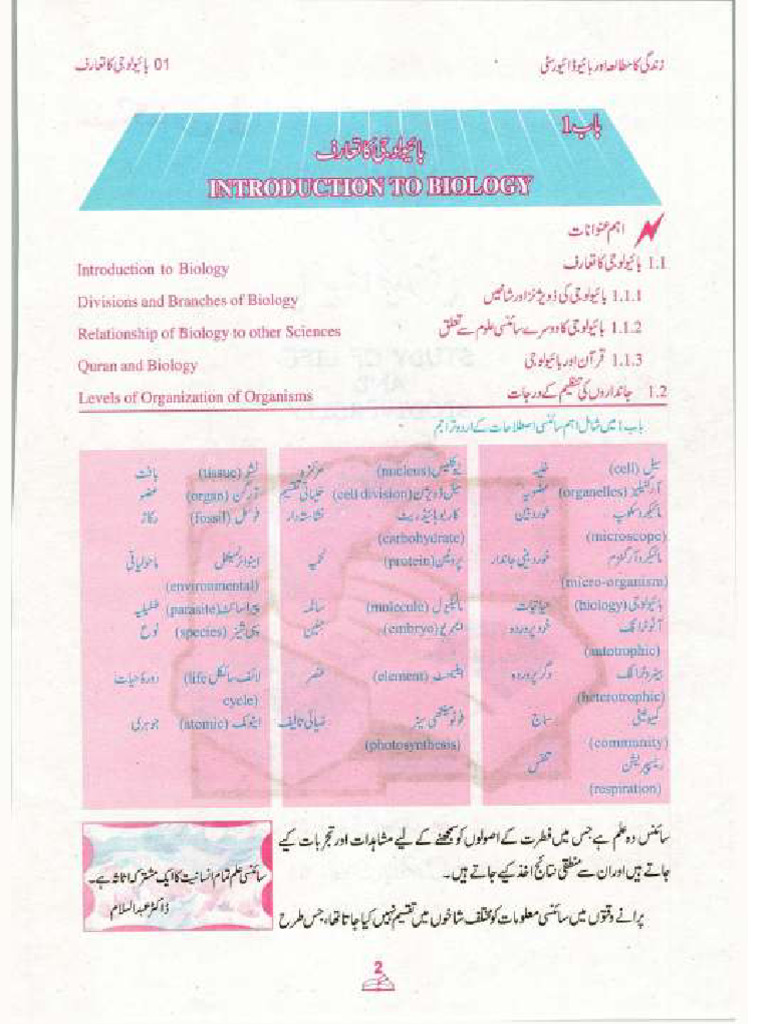 زندگی کا مطالعہ اور بائیوڈائیورسٹی
01 بائیولوجی کا تعارف
باب 1
بائیولوجی کا تعارف
INTRODUCTION TO BIOLOGY
اہم عنوانات
1.1 بائیولوجی کا تعارف Introduction to Biology
1.1.1 بائیولوجی کی ڈویژنز اور شاخیں Divisions and Branches of Biology
1.1.2 بائیولوجی کا دوسرے سائنسی علوم سے تعلق Relationship of Biology to other Sciences
1.1.3 قرآن اور بائیولوجی Quran and Biology
1.2 جانداروں کی تنظیم کے درجات Levels of Organization of Organisms
باب 1 میں شامل اہم سائنسی اصطلاحات کے اردو تراجم
سیل (cell) خلیہ
آرگنیلیز (organelles) عضویہ
مائیکروسکوپ خوردبین
(microscope)
مائیکروآرگنزم خوردبینی جاندار
(micro-organism)
بائیولوجی (biology) حیاتیات
آٹوٹرافک خود پروردہ
(autotrophic)
ہیٹروٹرافک دگر پروردہ
(heterotrophic)
کمیونٹی سماج
(community)
ریسپریشن تنفس
(respiration)
نیوکلیئس (nucleus) مرکزہ
سیل ڈویژن (cell division) خلیاتی تقسیم
کاربوہائیڈریٹ نشاستہ دار
(carbohydrate)
پروٹین (protein) لحمیہ
مالیکیول (molecule) سالمہ
ایمبریو (embryo) جنین
ایلیمنٹ (element) عنصر
فوٹوسینتھی سیز ضیائی تالیف
(photosynthesis)
ٹشو (tissue) بافت
آرگن (organ) عضو
فوسل (fossil) رکاز
اینوائرمینٹل ماحولیاتی
(environmental)
پیراسائٹ (parasite) طفیلیہ
سپی شیز (species) نوع
لائف سائیکل (life دورۂ حیات
cycle)
ایٹومک (atomic) جوہری
سائنس وہ علم ہے جس میں فطرت کے اصولوں کو سمجھنے کے لیے مشاہدات اور تجربات کیے
جاتے ہیں اور ان سے منطقی نتائج اخذ کیے جاتے ہیں۔
پرانے وقتوں میں سائنسی معلومات کو مختلف شاخوں میں تقسیم نہیں کیا جاتا تھا، جس طرح
سائنسی علم تمام انسانیت کا ایک مشترکہ اثاثہ ہے۔
ڈاکٹر عبدالسلام
2